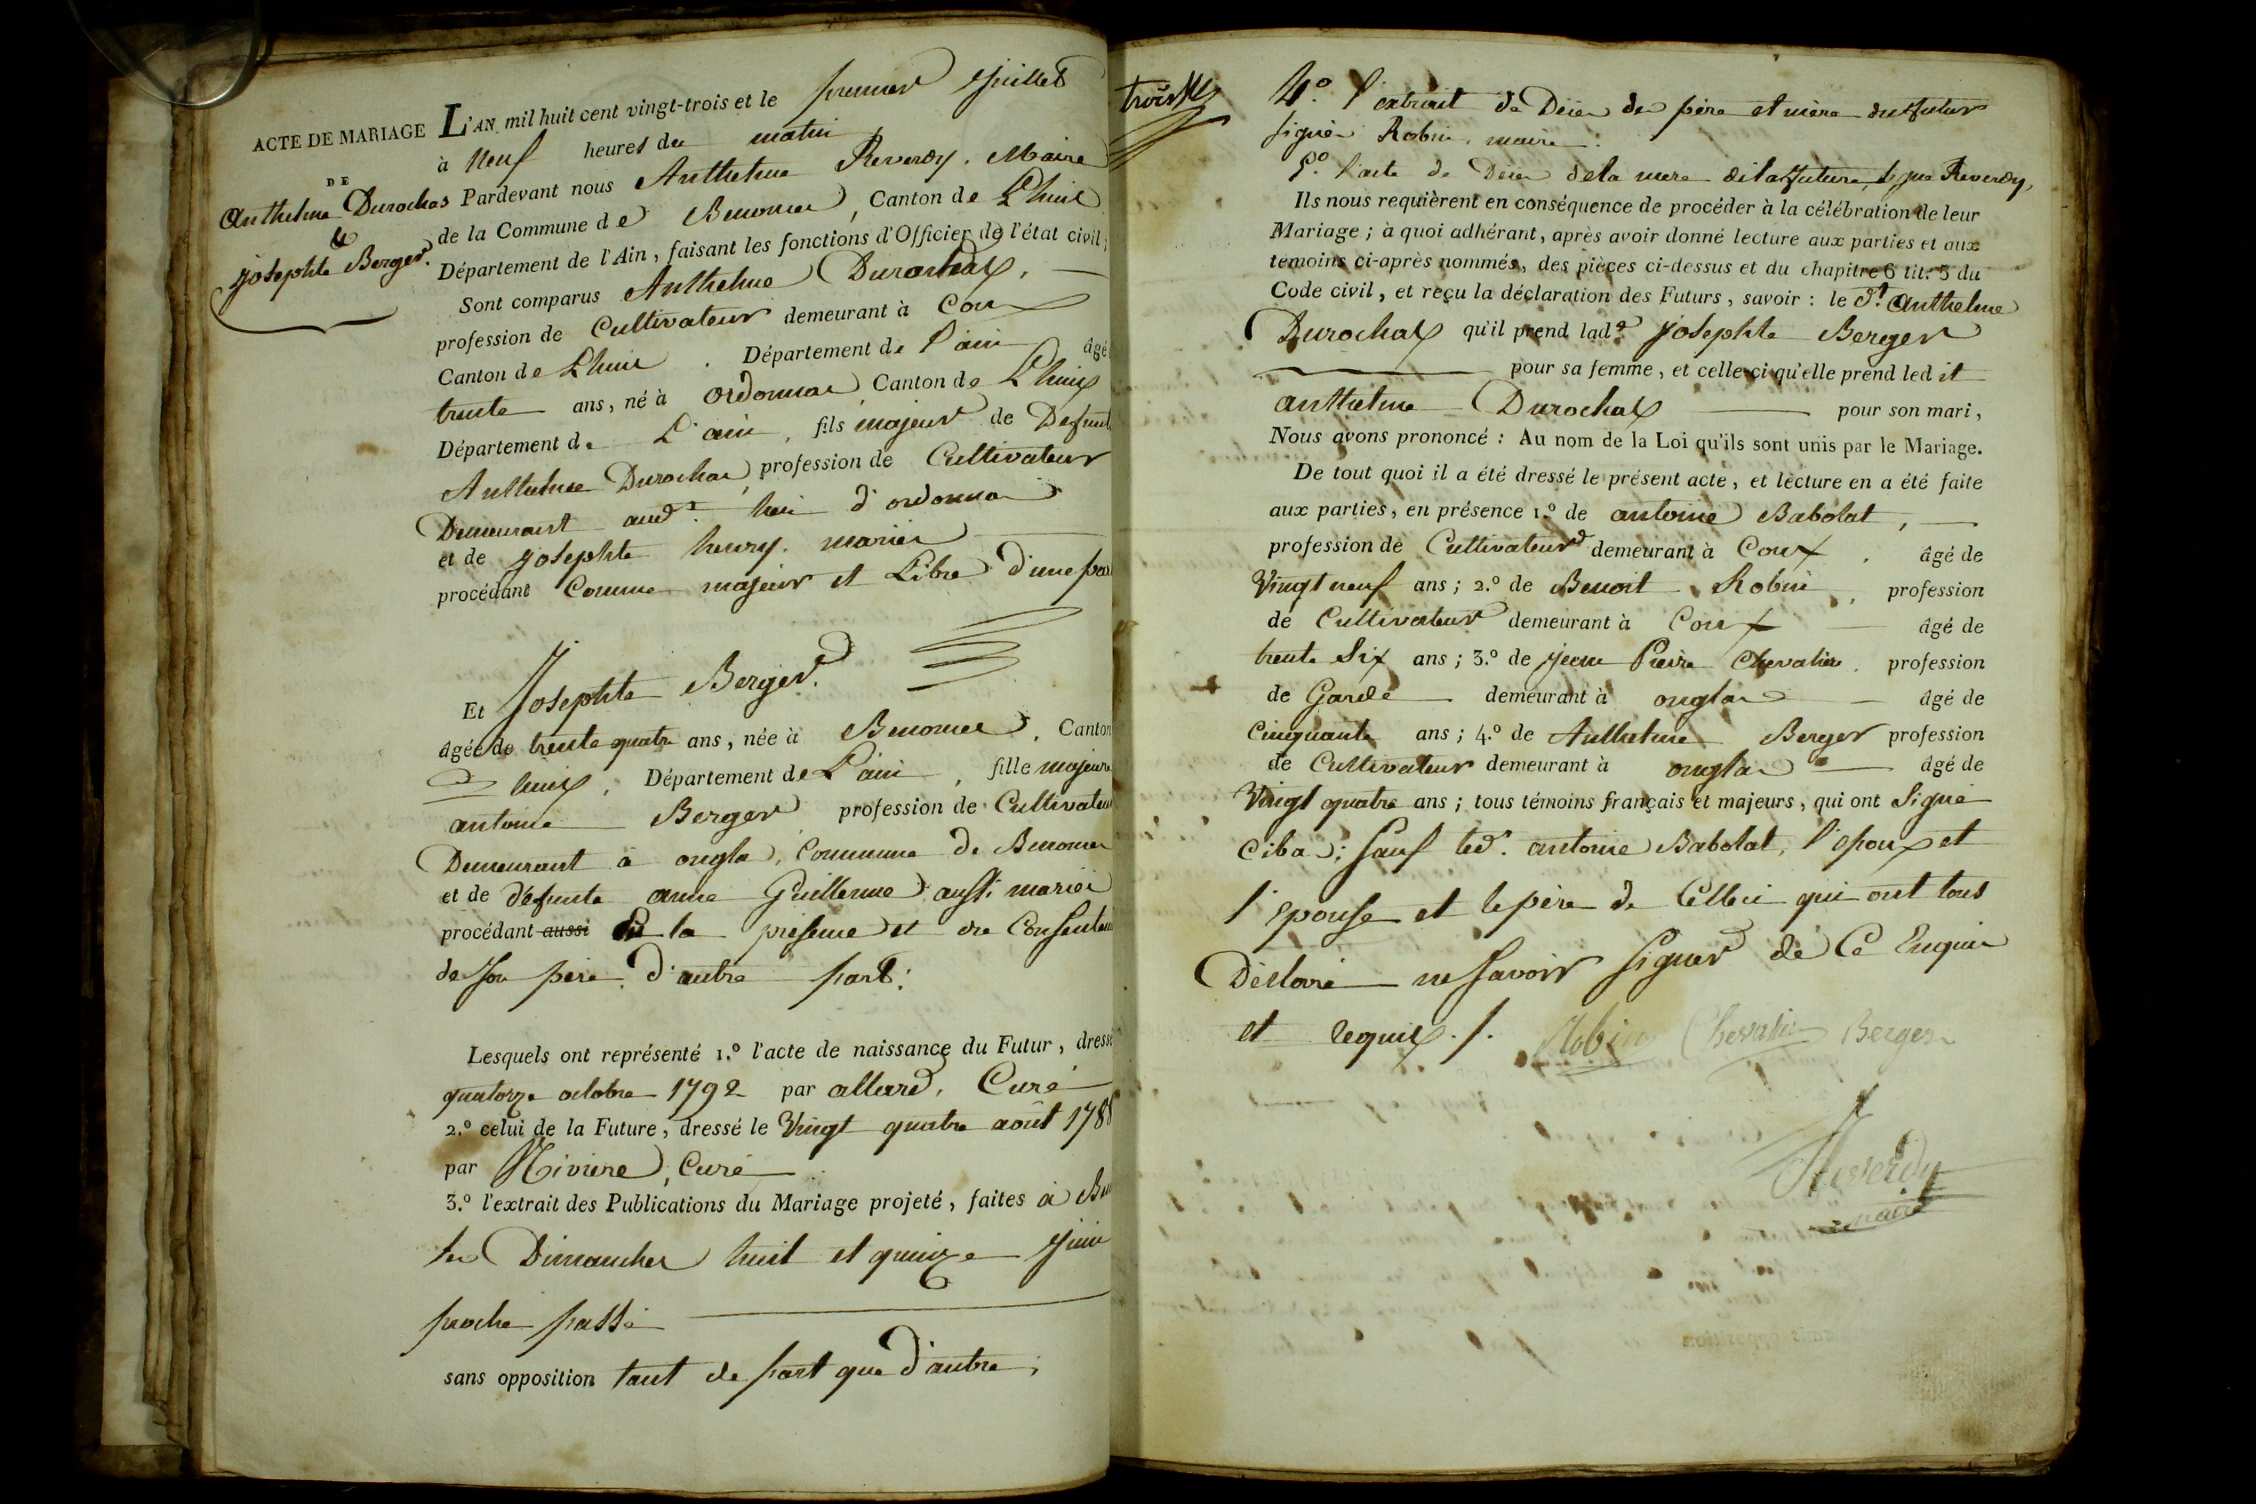 ACTE DE MARIAGE
DE
Anthelme Durochas
&
Josephte Berger.
L'AN mil huit cent vingt-trois et le premier Juillet
à neuf heures du matin
Pardevant nous Anthelme Reverdy, Maire
de la Commune de Benonce, Canton de Lhuis
Département de l'Ain, faisant les fonctions d'Officier de l'état civil;
Sont comparus Anthelme Durochat,
profession de Cultivateur demeurant à Coux
Canton de Lhuis. Département de l'ain âgé
trente ans, né à ordonnas Canton de Lhuis
Département de L'ain, fils majeur de Defunt
Anthelme Durochat, profession de Cultivateur
Demeurant aud.t lieu d'ordonnas
et de Josephte henry. mariés
procédant Comme majeur et Libre d'une part
Et Josephte Berger.
âgée de trente quatre ans, née à Benonce, Canton
D huis, Département de L'ain, fille majeure
antoine Berger profession de Cultivateur
Demeurant à ongla, Commune de Benonce
et de défunte anne Guillerme aussi mariés
procédant aussi la présence et du Consentem
de son père, d'autre part:
Lesquels ont représenté 1.º l'acte de naissance du Futur, dressé
quatorze octobre 1792 par allard, Curé
2.º celui de la Future, dressé le Vingt quatre août 1788
par Riviere, Curé
3.º l'extrait des Publications du Mariage projeté, faites à Be
les Dimanches huit et quinze Juin
proche passé
sans opposition tant de part que d'autre;
trois
4.º l'extrait de Décès des père et mère du futur
signés Robin, maire:
5.º l'acte de Décès de la mere de la future, signé Reverdy,
Ils nous requièrent en conséquence de procéder à la célébration de leur
Mariage; à quoi adhérant, après avoir donné lecture aux parties et aux
temoins ci-après nommés, des pièces ci-dessus et du chapitre 6 tit. 5 du
Code civil, et reçu la déclaration des Futurs, savoir: le d.t Anthelme
Durochat qu'il prend lad.e Josephte Berger
pour sa femme, et celle-ci qu'elle prend led it
anthelme Durochat pour son mari,
Nous avons prononcé: Au nom de la Loi qu'ils sont unis par le Mariage.
De tout quoi il a été dressé le présent acte, et lecture en a été faite
aux parties, en présence 1.º de antoine Babolat,
profession de Cultivateur demeurant à Coux, âgé de
Vingt neuf ans; 2.º de Benoit Robin, profession
de Cultivateur demeurant à Coux âgé de
trente Six ans; 3.º de jean Pierre Chevalier, profession
de Garde demeurant à onglas âgé de
Cinquante ans; 4.º de Anthelme Berger profession
de Cultivateur demeurant à onglas âgé de
Vingt quatre ans; tous témoins français et majeurs, qui ont Signé
Ciba; sauf led. antoine Babolat, l'epoux et
l'epouse et le père de Celleci qui ont tous
Déclaré ne Savoir Signer de Ce Enquis
et requis./. Robin Chevalier Berger
Reverdy
maire